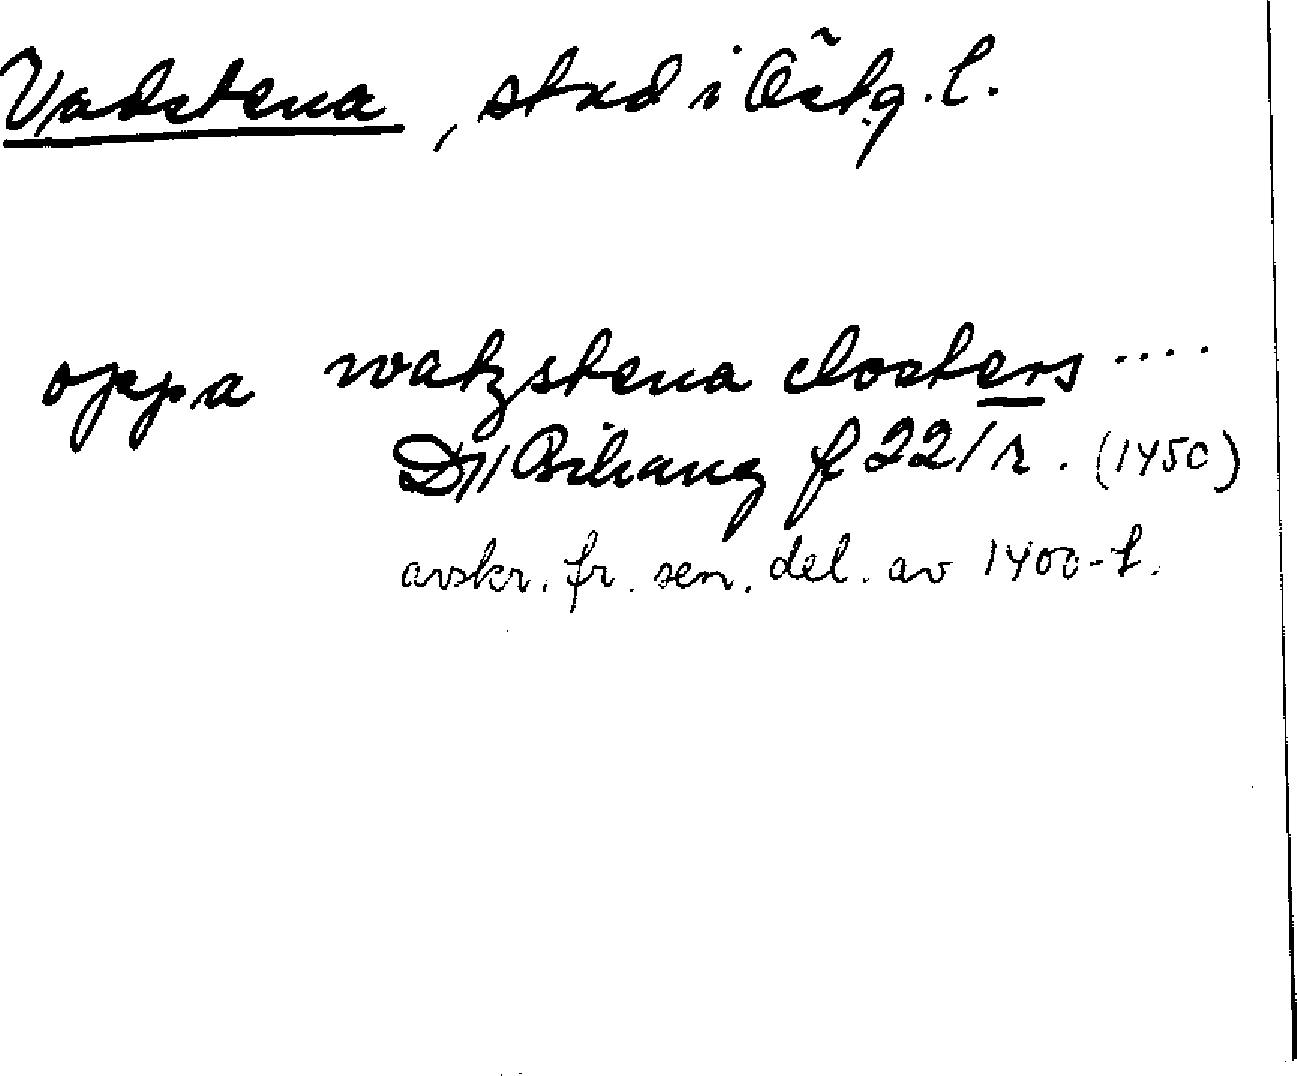 Vadstena, stad i Östg.l.
oppa watzstena closters ....
D 11 Bihang f 22/r. (1450)
avskr. fr. sen. del. av 1400-t.